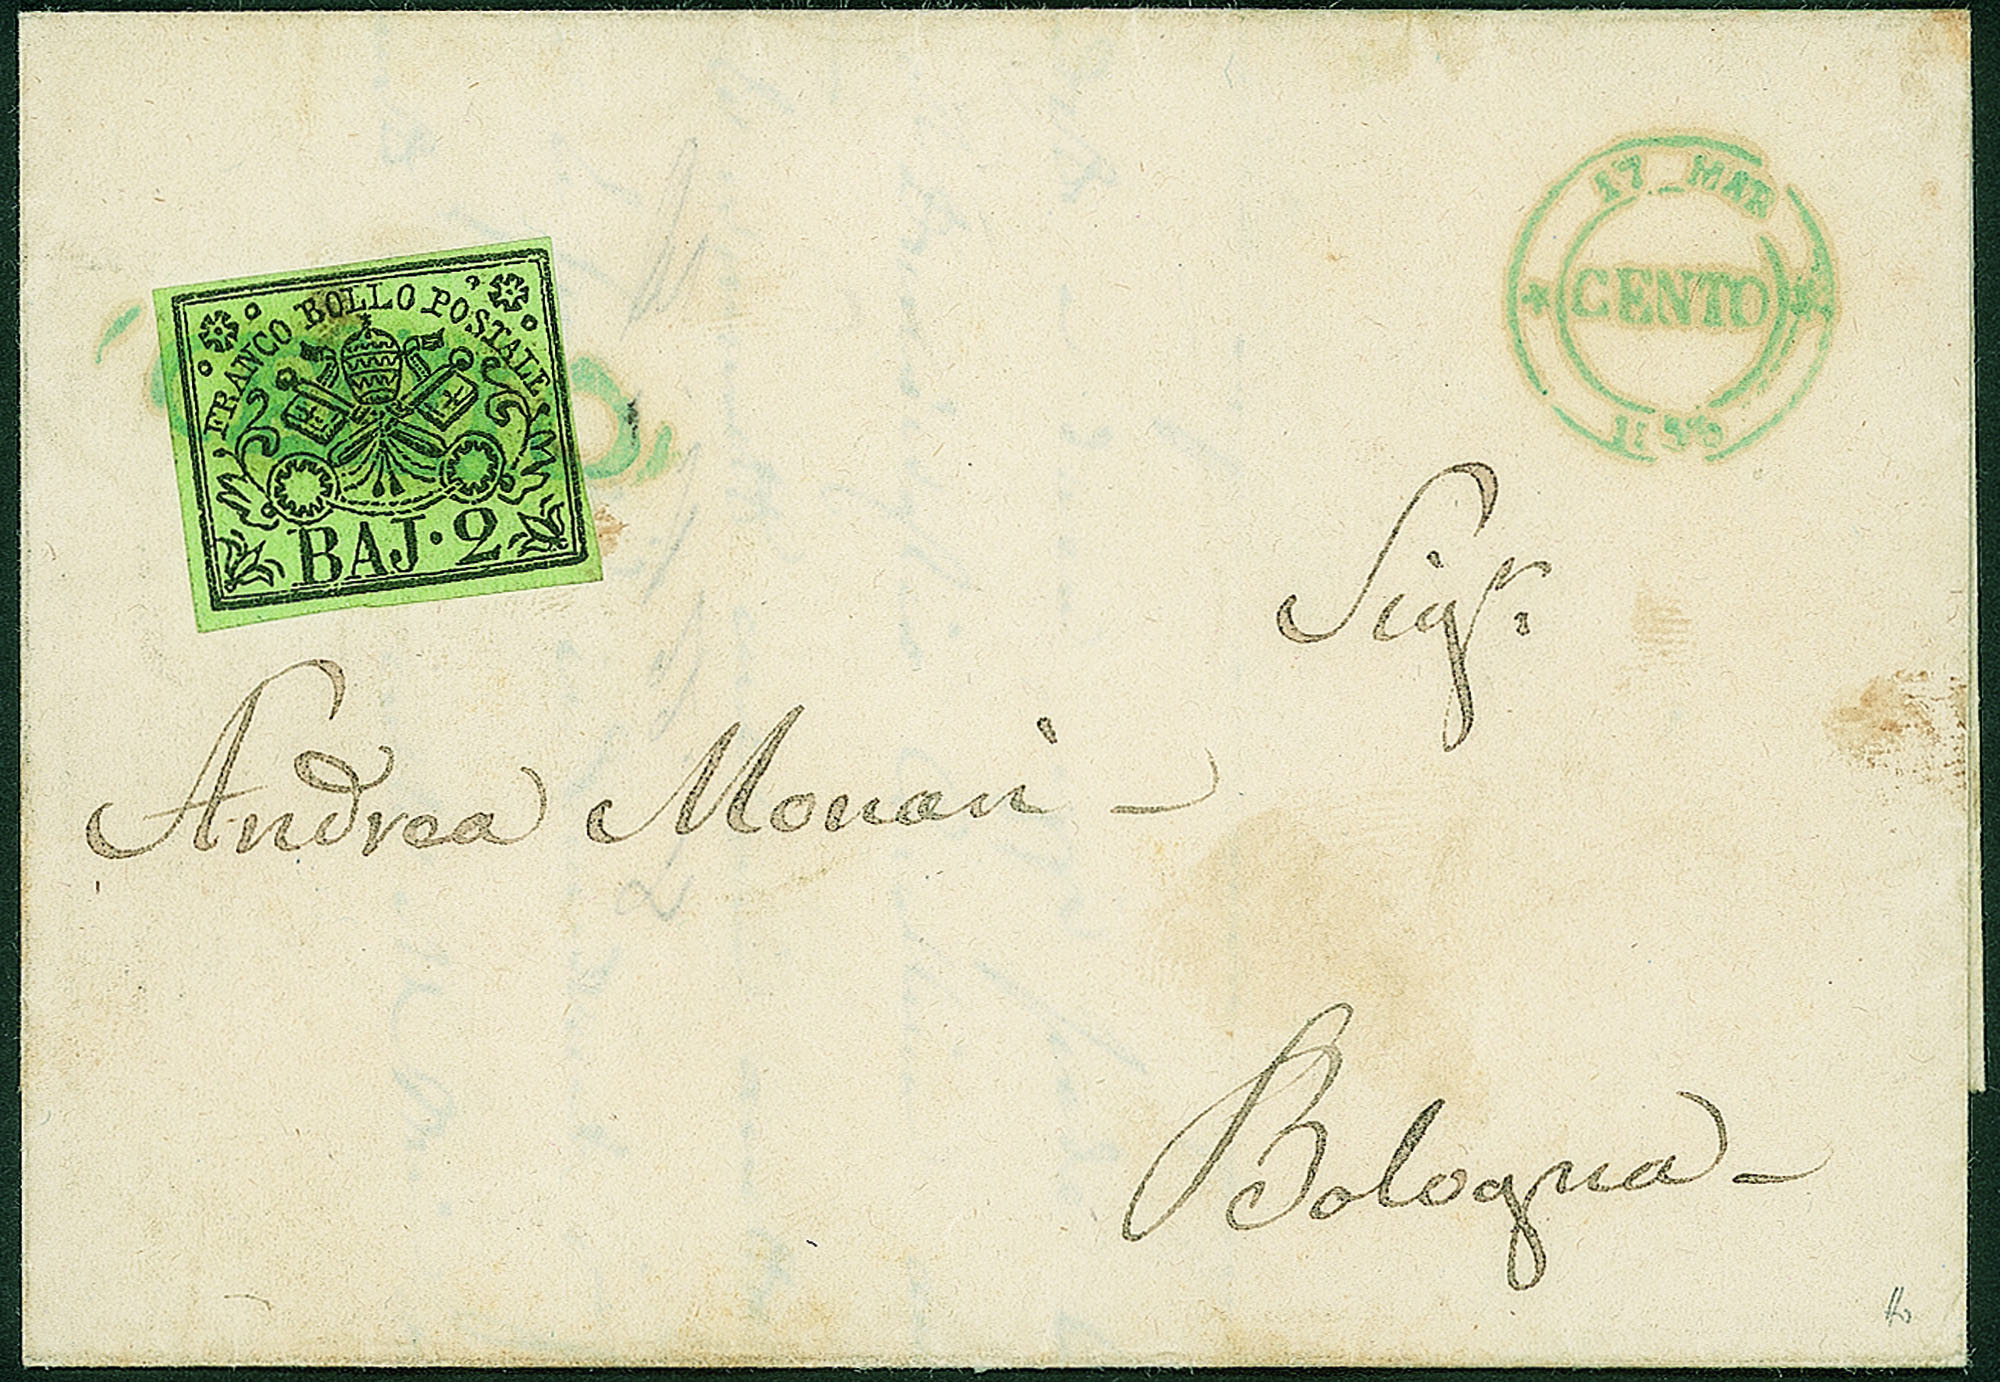 FRANCO BOLLO POSTALE
BAJ. 2
17 MAR
CENTO
Sigr.
Andrea Monari -
Bologna -